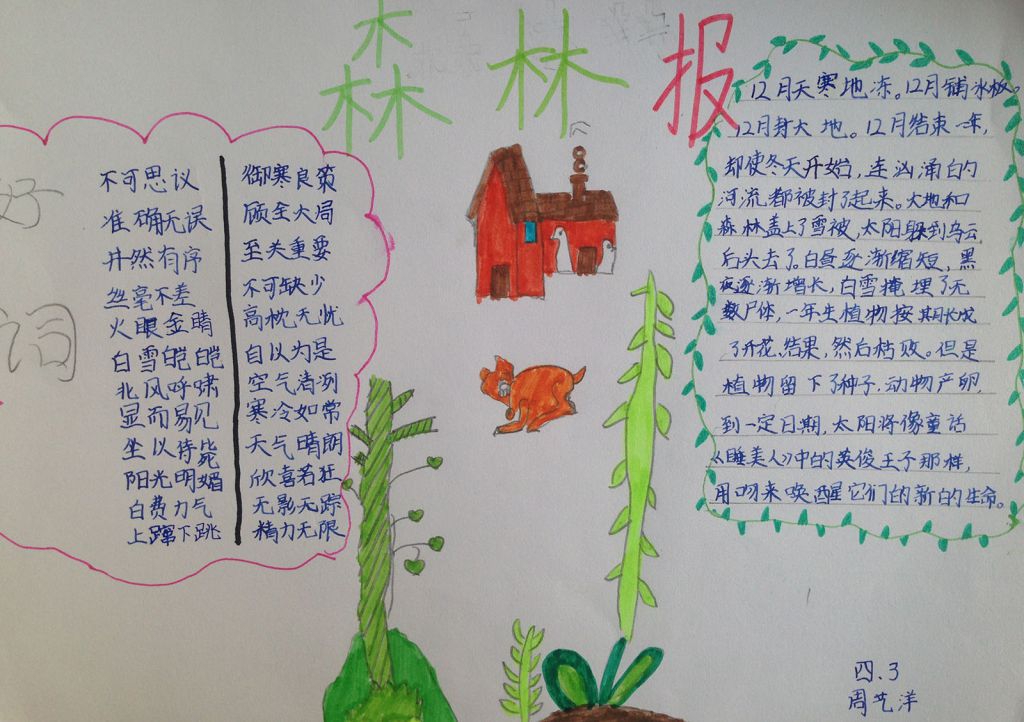 森林报
好词
不可思议
准确无误
井然有序
丝毫不差
火眼金睛
白雪皑皑
北风呼啸
显而易见
坐以待毙
阳光明媚
白费力气
上蹿下跳
御寒良策
顾全大局
至关重要
不可缺少
高枕无忧
自以为是
空气清冽
寒冷如常
天气晴朗
欣喜若狂
无影无踪
精力无限
12月天寒地冻。12月铺冰板。
12月封大地。12月结束一年,
却使冬天开始,连汹涌的
河流都被封了起来。大地和
森林盖上了雪被,太阳躲到乌云
后头去了。白昼逐渐缩短,黑
夜逐渐增长,白雪掩埋了无
数尸体,一年生植物按其期长成
了开花、结果,然后枯败。但是
植物留下了种子,动物产卵,
到一定日期,太阳将像童话
《睡美人》中的英俊王子那样,
用吻来唤醒它们的新的生命。
四.3
周艺洋